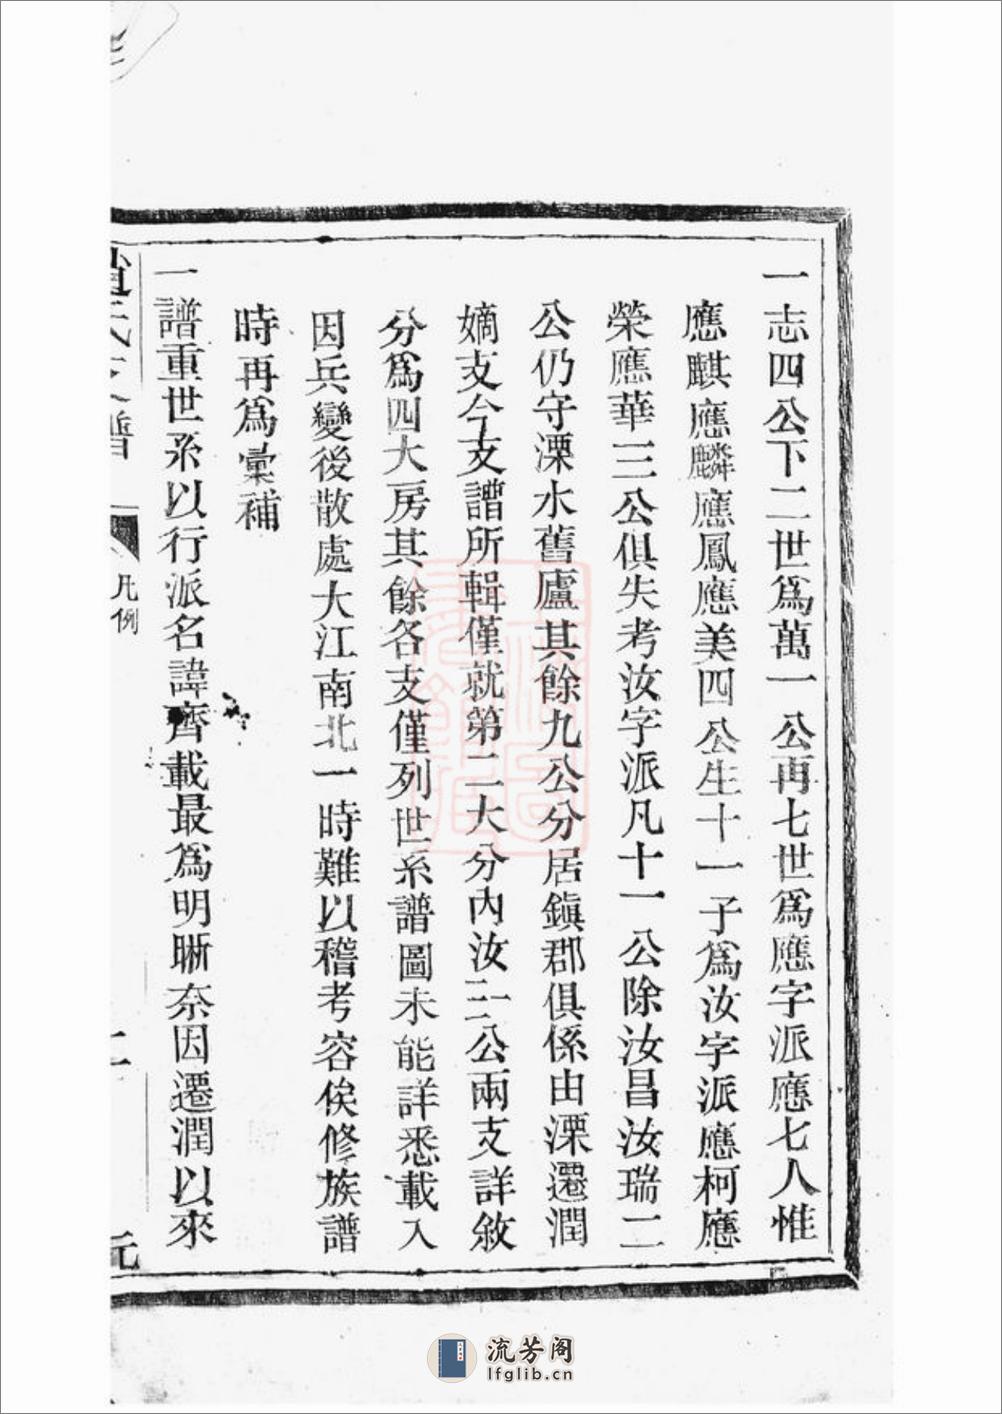 一志四公下二世爲萬一公再七世爲應字派應七人惟
應麒應麟應鳳應美四公生十一子爲汝字派應柯應
榮應華三公俱失考汝字派凡十一公除汝昌汝瑞二
公仍守溧水舊廬其餘九公分居鎭郡俱係由溧遷潤
嫡支今支譜所輯僅就第二大分內汝二公兩支詳敘
分爲四大房其餘各支僅列世系譜圖未能詳悉載入
因兵變後散處大江南北一時難以稽考容俟修族譜
時再爲彙補
一譜重世系以行派名諱齊載最爲明晰奈因遷潤以來
趙氏支譜
凡例
二
元
流芳阁
lfglib.cn